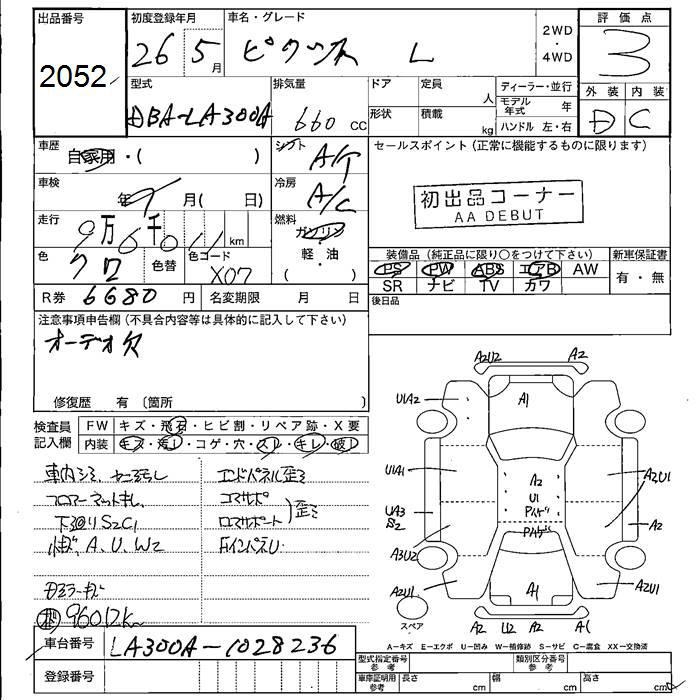 出品番号
2052
初度登録年月
26 5月
車名・グレード
ピクシス L
2WD
・
4WD
評価点
3
外装 内装
D C
型式
DBA-LA300A
排気量
660 cc
ドア
定員
人
形状
積載
kg
ディーラー・並行
モデル年式
年
ハンドル 左・右
車歴
自家用・( )
シフト
A/T
車検
年 9月( 日)
冷房
A/C
走行
9万6千011km
燃料
ガソリン
軽・油
( )
色
クロ
色替
色コード
X07
R券 6680円
名変期限 月 日
セールスポイント(正常に機能するものに限ります)
初出品コーナー
AA DEBUT
装備品(純正品に限り○をつけて下さい)
PS PW ABS エアB AW
SR ナビ TV カワ
新車保証書
有・無
後日品
注意事項申告欄(不具合内容等は具体的に記入して下さい)
オーデオ欠
修復歴 有〔箇所 〕
検査員記入欄
FW キズ・飛石・ヒビ割・リペア跡・X要
内装 キズ・汚レ・コゲ・穴・スレ・キレ・破レ
車内シミ
フロアーマットキレ
下廻りS2C1
A、U、W2
96012k
エンドパネル歪ミ
コアサポ
ロアサポート
歪ミ
FインパネU
車台番号
LA300A-1028236
登録番号
A2U2
A2
U1A2
A1
U1A1
A2
U1
A2U1
UA3
S2
A2
A3U2
A2U1
A1
A2U1
スペア
A2 U2 A2 A1
A-キズ E-エクボ U-凹み W-補修跡 S-サビ C-腐食 XX-交換済
型式指定番号
参考
類別区分番号
参考
車庫証明用
参考
長さ cm
幅 cm
高さ cm